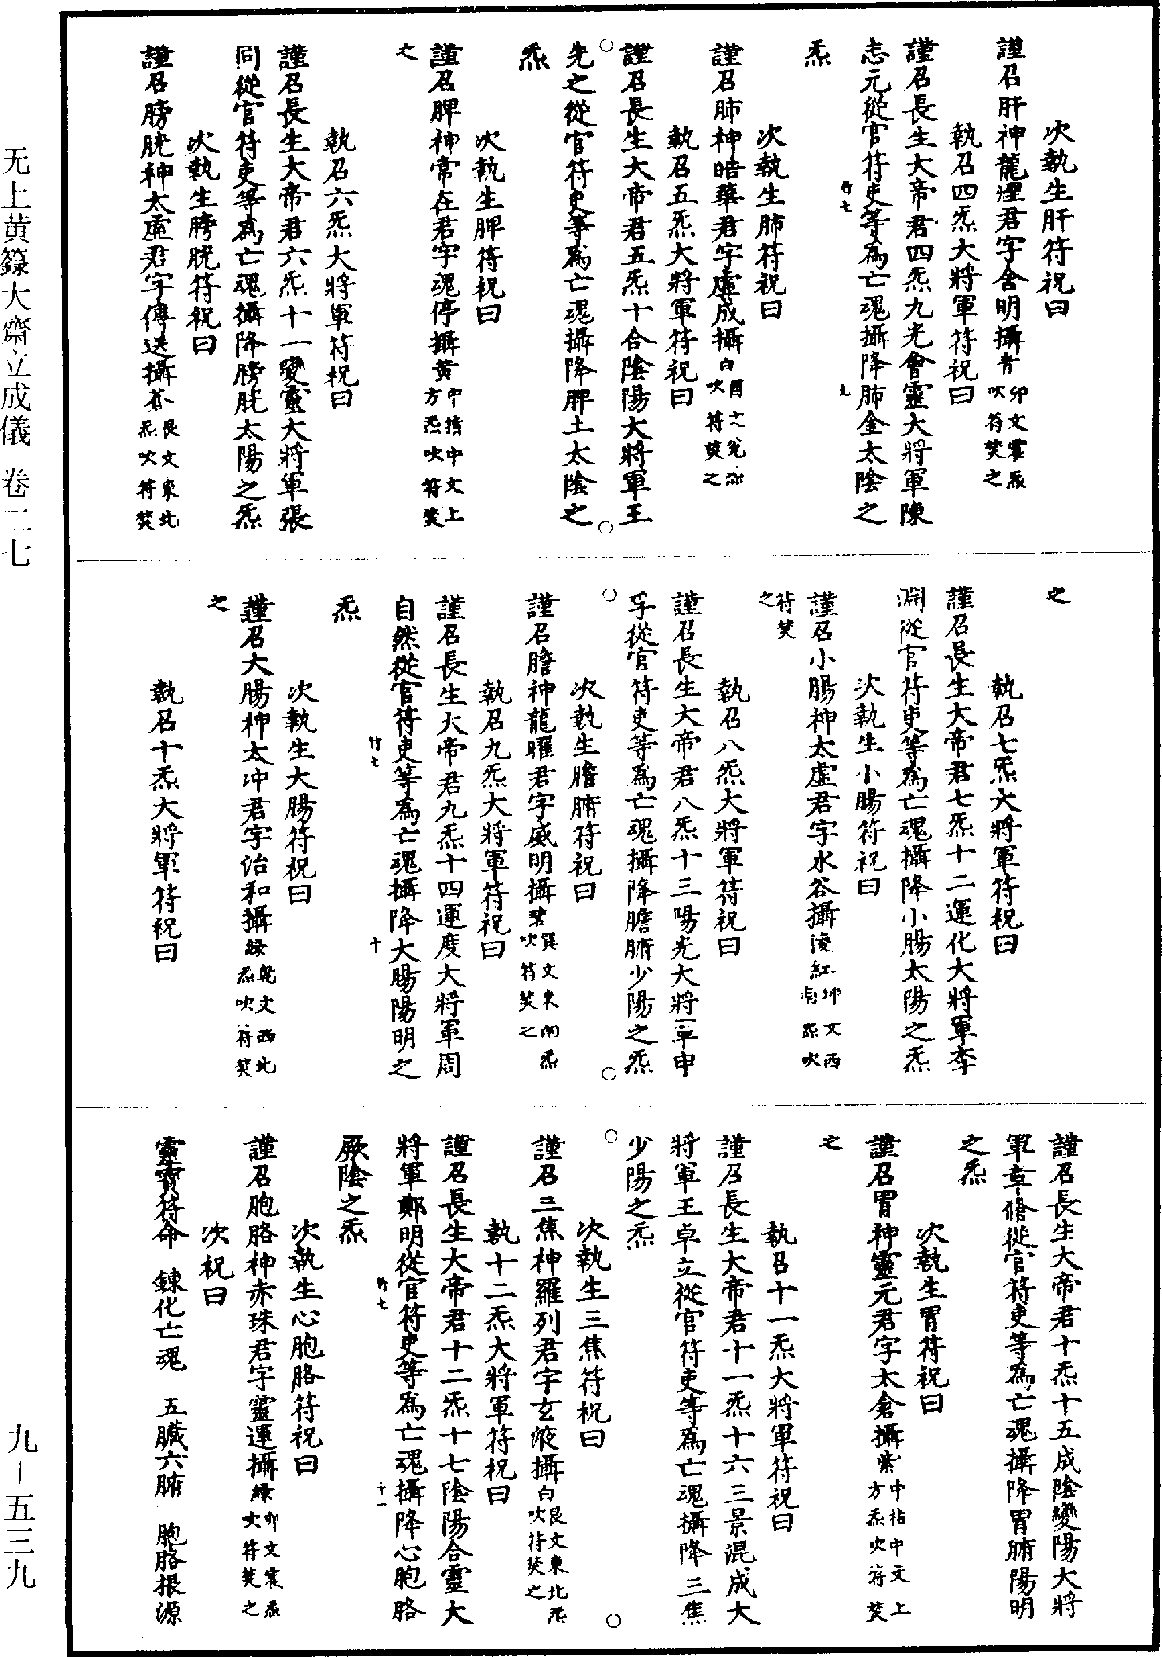 次執生肝符祝曰
謹召肝神龍煙君字含明攝青卯文震炁吹符焚之
執召四炁大將軍符祝曰
謹召長生大帝君四炁九光會靈大將軍陳
志元從官符吏等為亡魂攝降肺金太陰之
炁
次執生肺符祝曰
謹召肺神皓華君字虛成攝白酉文兌炁吹符焚之
執召五炁大將軍符祝曰
謹召長生大帝君五炁十合陰陽大將軍王
先之從官符吏等為亡魂攝降脾土太陰之
炁
次執生脾符祝曰
謹召脾神常在君字魂停攝黃中指中文上方炁吹符焚
之
執召六炁大將軍符祝曰
謹召長生大帝君六炁十一變靈大將軍張
同從官符吏等為亡魂攝降膀胱太陽之炁
次執生膀胱符祝曰
謹召膀胱神太靈君字傳送攝蒼艮文東北炁吹符焚
之
執召七炁大將軍符祝曰
謹召長生大帝君七炁十二運化大將軍李
淵從官符吏等為亡魂攝降小腸太陽之炁
次執生小腸符祝曰
謹召小腸神太虛君字水谷攝紅坤文西南炁吹
符焚之
執召八炁大將軍符祝曰
謹召長生大帝君八炁十三陽光大將軍申
孚從官符吏等為亡魂攝降膽腑少陽之炁
次執生膽腑符祝曰
謹召膽神龍曜君字威明攝碧巽文東南炁吹符焚之
執召九炁大將軍符祝曰
謹召長生大帝君九炁十四運度大將軍周
自然從官符吏等為亡魂攝降大腸陽明之
炁
次執生大腸符祝曰
謹召大腸神太冲君字治和攝綠乾文西北炁吹符焚
之
執召十炁大將軍符祝曰
謹召長生大帝君十炁十五成陰變陽大將
軍章脩從官符吏等為亡魂攝降胃腑陽明
之炁
次執生胃符祝曰
謹召胃神靈元君字太倉攝紫中指中文上方炁吹符焚
之
執召十一炁大將軍符祝曰
謹召長生大帝君十一炁十六三景混成大
將軍王卓立從官符吏等為亡魂攝降三焦
少陽之炁
次執生三焦符祝曰
謹召三焦神羅列君字玄液攝白艮文東北炁吹符焚之
執十二炁大將軍符祝曰
謹召長生大帝君十二炁十七陰陽合靈大
將軍鄭明從官符吏等為亡魂攝降心胞胳
厥陰之炁
次執生心胞胳符祝曰
謹召胞胳神赤珠君字靈運攝綠卯文震炁吹符焚之
次祝曰
靈寶符命　鍊化亡魂　五臟六腑　胞胳根源
无上黄籙大齋立成儀 卷二七
九－五三九